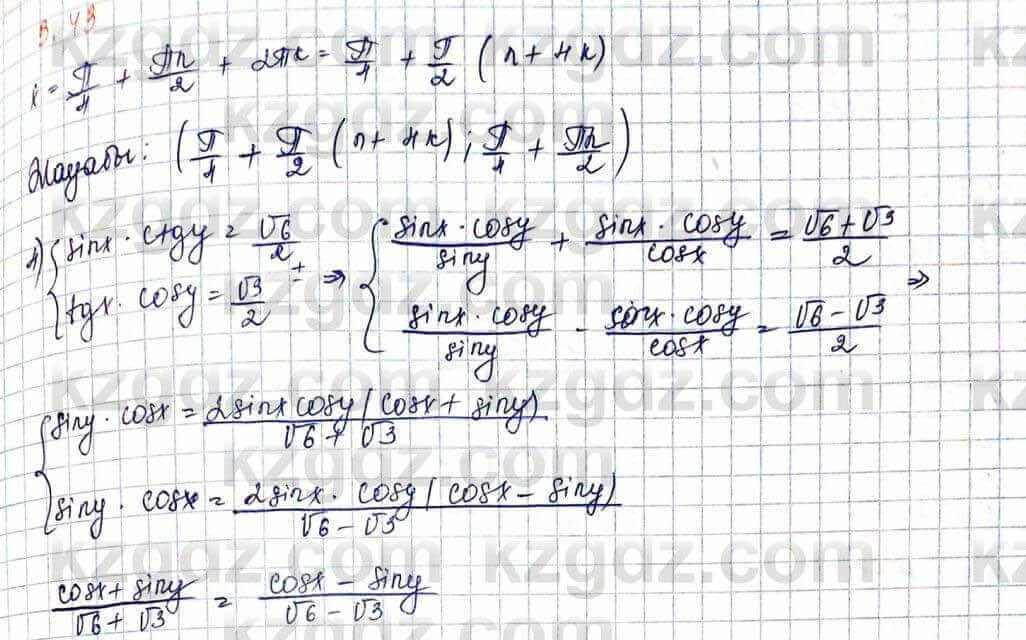 3.43
x = π/4 + πn/2 + 2πk = π/4 + π/2 (n + 4k)
Жауабы: (π/4 + π/2 (n + 4k); π/4 + πn/2)
4) { sinx · ctgy = √6/2
{ tgx · cosy = √3/2 ± ⇒ { sinx · cosy/siny + sinx · cosy/cosx = √6 + √3/2
{ sinx · cosy/siny - sinx · cosy/cosx = √6 - √3/2 ⇒
{ siny · cosx = 2sinx cosy (cosx + siny)/√6 + √3
{ siny · cosx = 2sinx · cosy (cosx - siny)/√6 - √3
cosx + siny/√6 + √3 = cosx - siny/√6 - √3
kzgdz.com